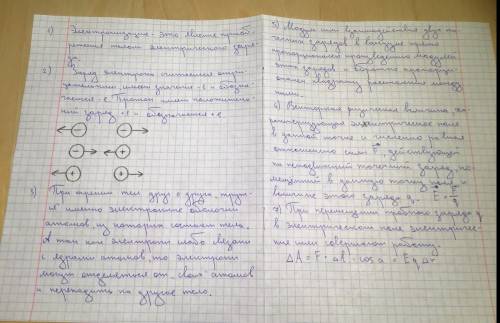 1) Электризация - это явление приоб-
ретения телом электрического заря-
да.
2) Заряд электрона считается отри-
цательным, имеет значение -e и обозна-
чается -e. Протон имеет положитель-
ный заряд +e и обозначается +e.
- -
- +
+ +
3) При трении тел друг о друга, трут-
ся именно электронные оболочки
атомов, из которых состоят тела.
А так как электроны слабо связаны
с ядрами атомов, то электроны
могут отделяться от "своих" атомов
и переходить на другое тело.
5) Модуль сил взаимодействия двух то-
чечных зарядов в вакууме прямо
пропорционален произведению модулей
этих зарядов и обратно пропорци-
онален квадрату расстояния между
ними.
6) Векторная физическая величина, ха-
рактеризующая электрическое поле
в данной точке и численно равная
отношению силы F действующей
на неподвижный точечный заряд, по-
мещённый в данную точку поля, к
величине этого заряда q. E = F/q
7) При перемещении пробного заряда q
в электрическом поле электричес-
кие силы совершают работу.
ΔA = F · Δl · cos α = E q Δ